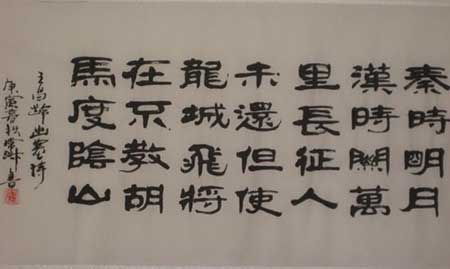 秦時明月
漢時關萬
里長征人
未還但使
龍城飛將
在不教胡
馬度陰山
王昌齡出塞詩
庚寅